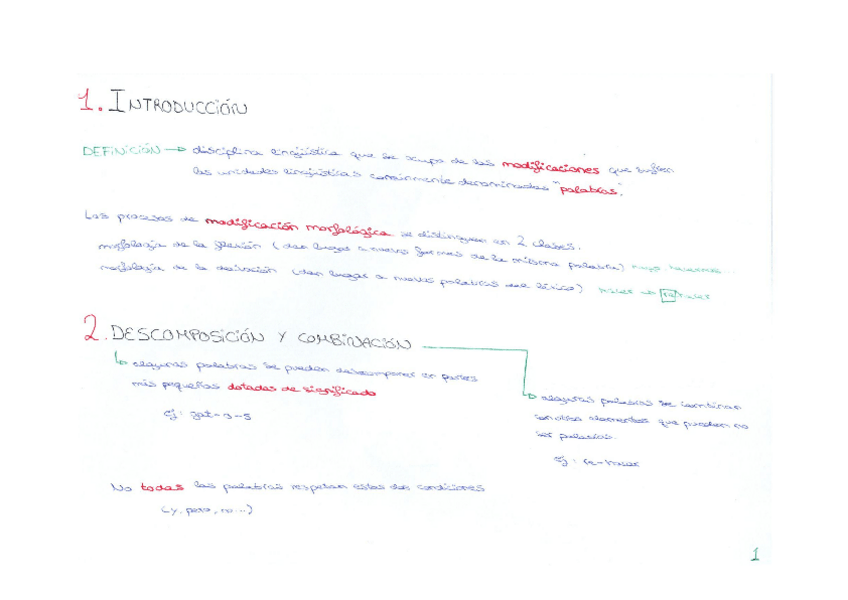 1. INTRODUCCIÓN
DEFINICIÓN → disciplina lingüística que se ocupa de las modificaciones que sufren
las unidades lingüísticas comúnmente denominadas "palabras".
Los procesos de modificación morfológica se distinguen en 2 clases.
morfología de la flexión (dan lugar a nuevas formas de la misma palabra) hago, hacemos...
morfología de la derivación (dan lugar a nuevas palabras del léxico) hacer → rehacer
2. DESCOMPOSICIÓN Y COMBINACIÓN
algunas palabras se pueden descomponer en partes
más pequeñas dotadas de significado
ej: gat-a-s
algunas palabras se combinan
con otros elementos que pueden no
ser palabras.
ej: re-hacer
No todas las palabras respetan estas dos condiciones
(y, pero, no...)
1